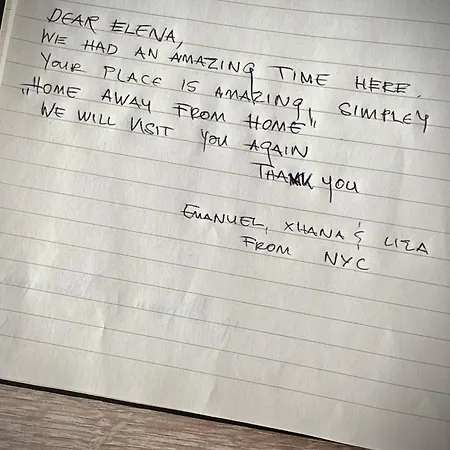 DEAR ELENA,
WE HAD AN AMAZING TIME HERE.
YOUR PLACE IS AMAZING, SIMPLEY
„HOME AWAY FROM HOME"
WE WILL VISIT YOU AGAIN
THANK YOU
EMANUEL, XHANA & LIZA
FROM NYC